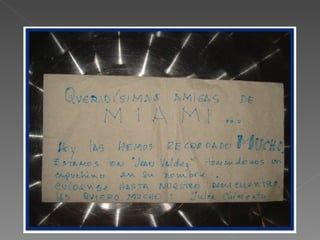 QUERIDÍSIMAS AMIGAS DE
MIAMI...
HOY LAS HEMOS RECORDADO MUCHO.
ESTAMOS EN "JUAN VALDEZ" TOMÁNDONOS UN
CAPUCHINO EN SU NOMBRE.
CUÍDENSE HASTA NUESTRO REENCUENTRO.
LAS QUIERO MUCHO! Julia